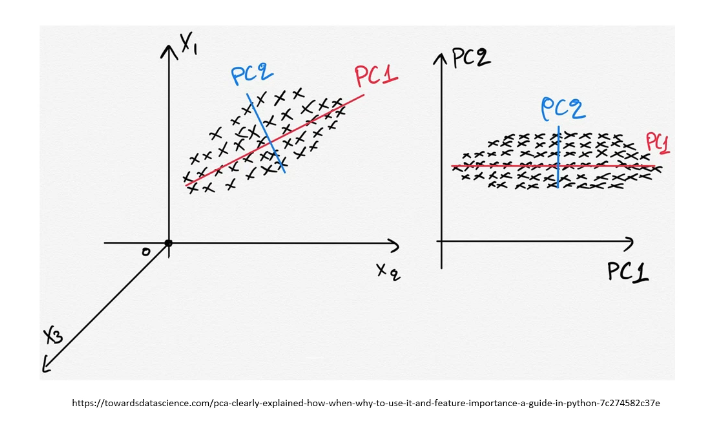 X1
PC2
PC1
0
X2
X3
PC2
PC2
PC1
PC1
https://towardsdatascience.com/pca-clearly-explained-how-when-why-to-use-it-and-feature-importance-a-guide-in-python-7c274582c37e